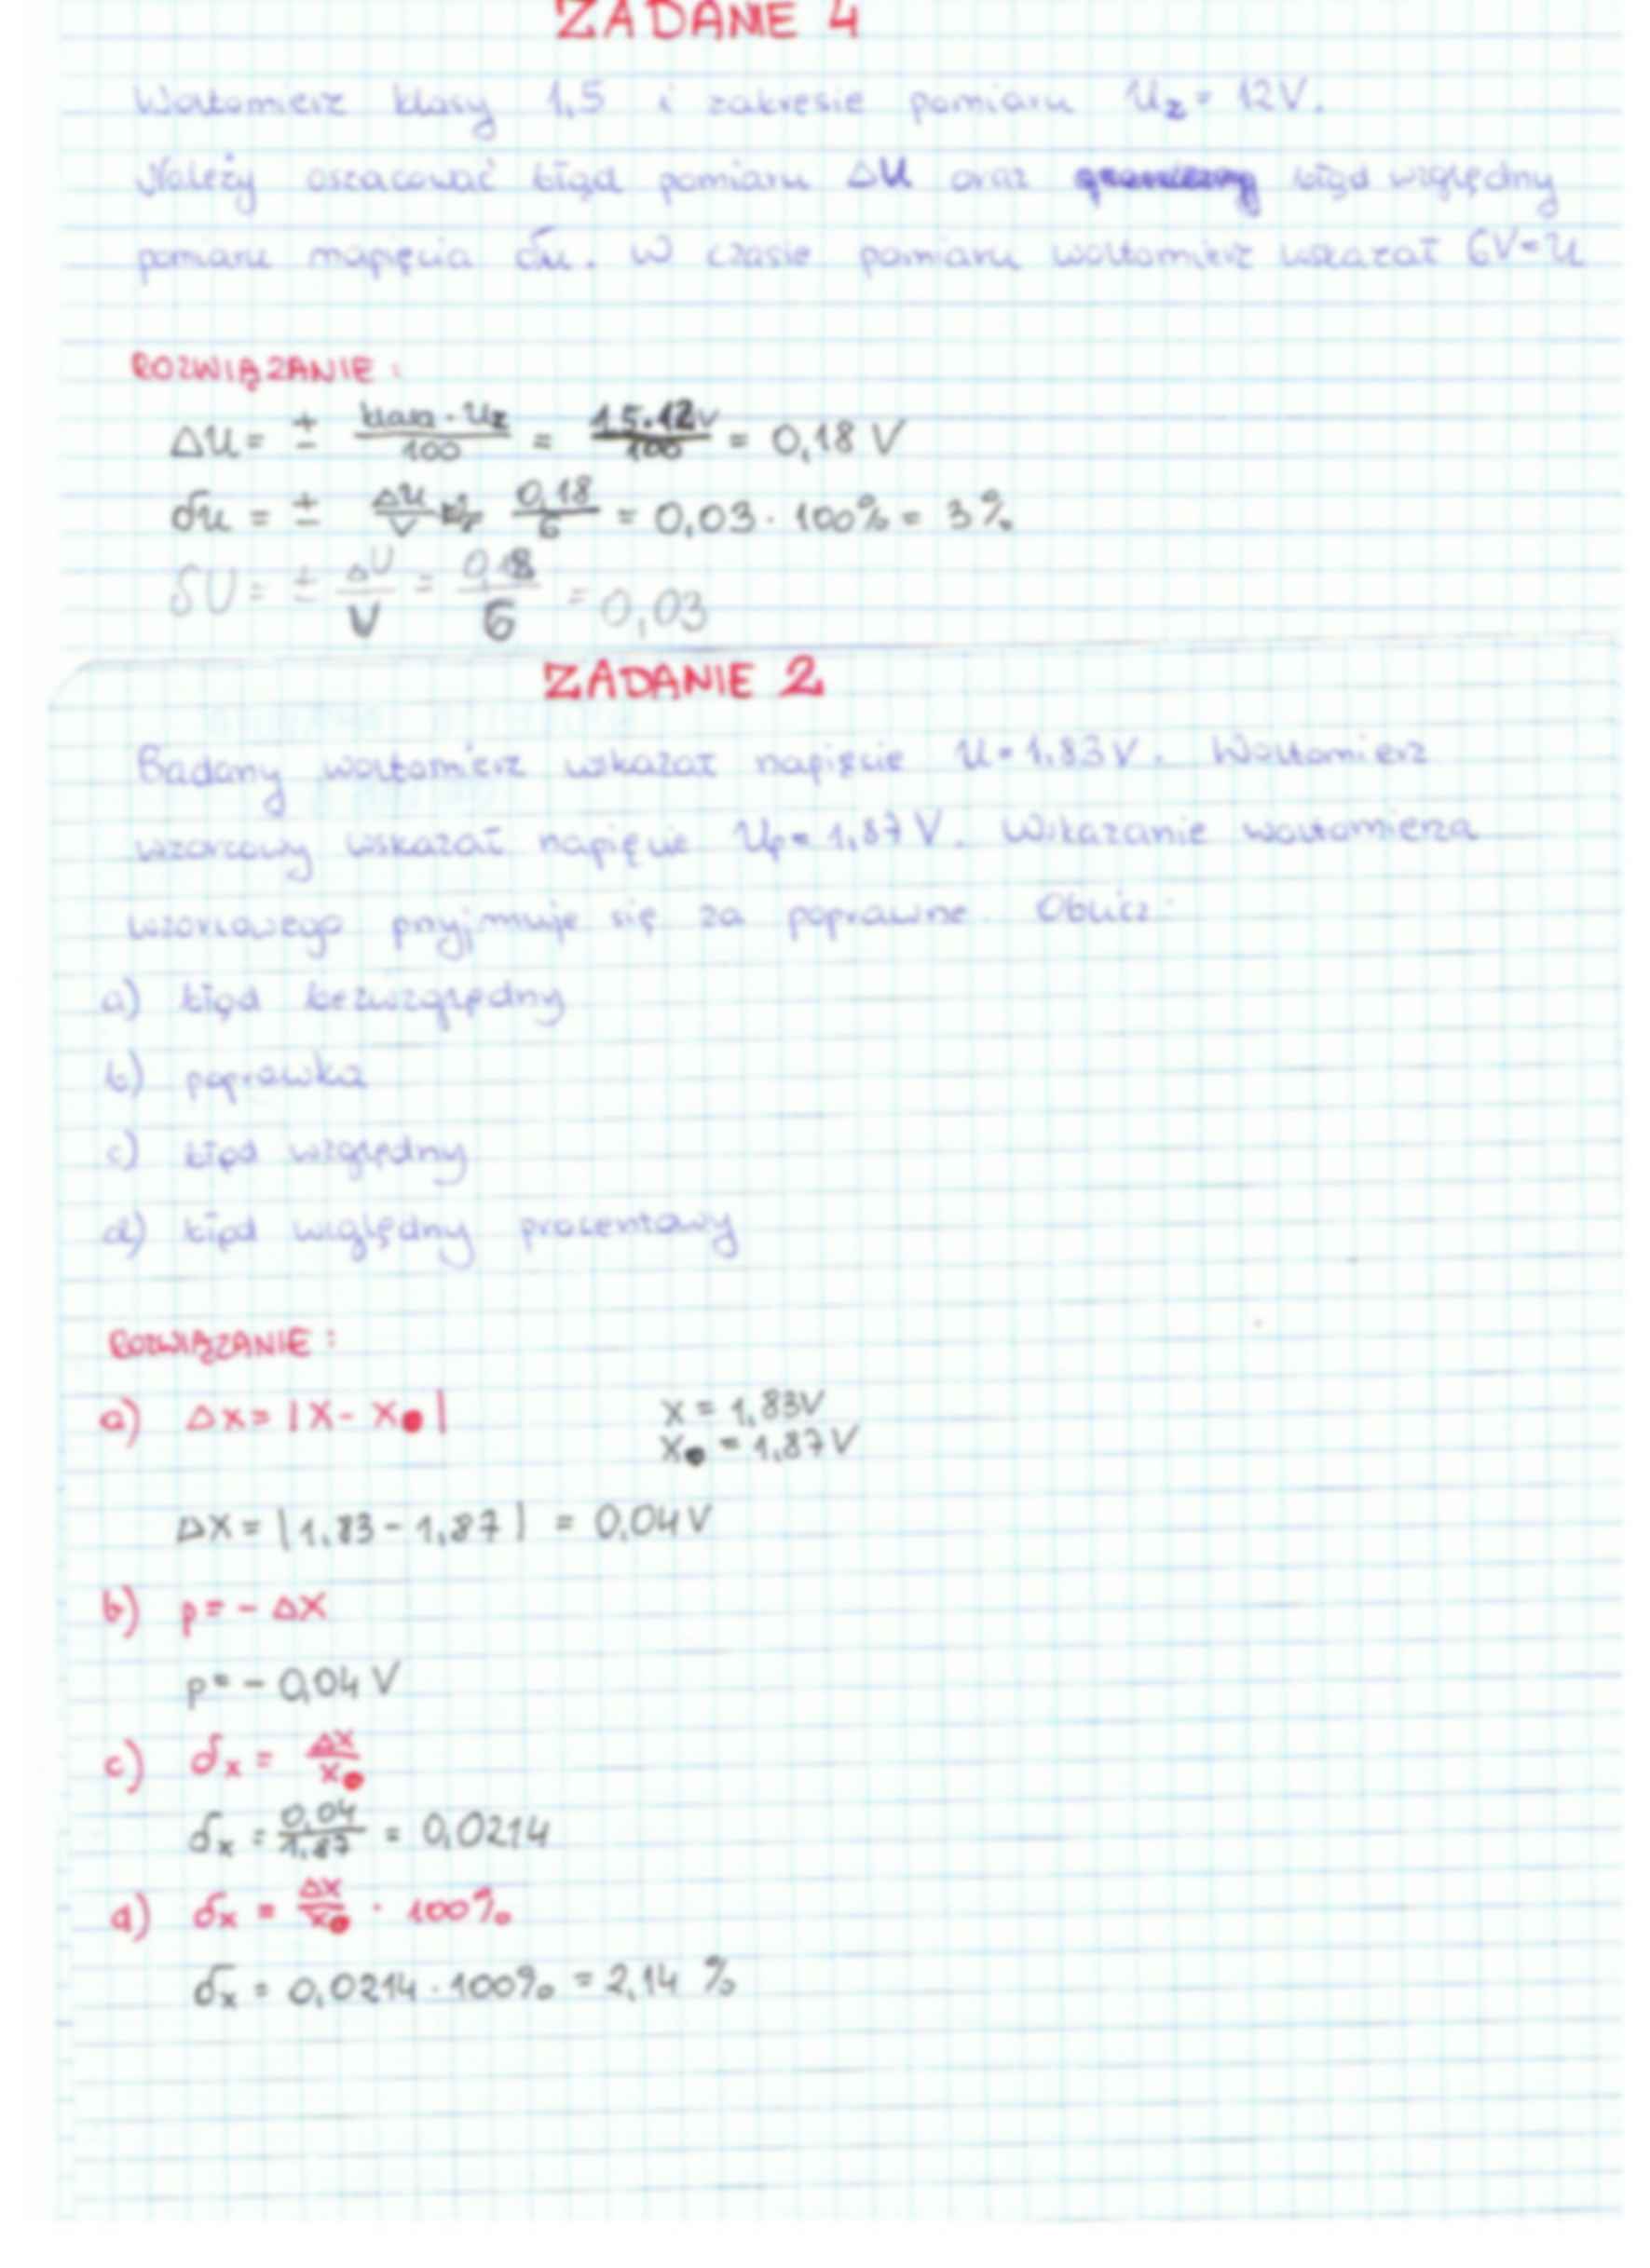 ZADANIE 4
Woltomierz klasy 1,5 i zakresie pomiaru Uz = 12V.
Należy oszacować błąd pomiaru ΔU oraz błąd względny
pomiaru napięcia δu. W czasie pomiaru woltomierz wskazał 6V=U
ROZWIĄZANIE:
ΔU = ± klasa · Uz / 100 = 1,5 · 12V / 100 = 0,18 V
δu = ± ΔU / V 0,18 / 6 = 0,03 · 100% = 3%
δU = ± ΔU / V = 0,18 / 6 = 0,03
ZADANIE 2
Badany woltomierz wskazał napięcie U = 1,83V. Woltomierz
wzorcowy wskazał napięcie Up = 1,87 V. Wskazanie woltomierza
wzorcowego przyjmuje się za poprawne. Oblicz:
a) błąd bezwzględny
b) poprawka
c) błąd względny
d) błąd względny procentowy
ROZWIĄZANIE:
a) Δx = |x - x | x = 1,83V
x = 1,87V
Δx = |1,83 - 1,87| = 0,04V
b) p = - Δx
p = - 0,04 V
c) δx = Δx / x
δx = 0,04 / 1,87 = 0,0214
d) δx = Δx / x · 100%
δx = 0,0214 · 100% = 2,14 %